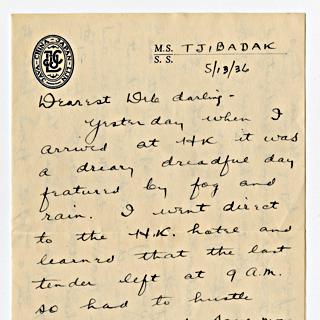 JAVA-CHINA-JAPAN-LIJN
M.S. TJIBADAK
S.S.
5/13/36
Dearest Deb darling-
Yesterday when I
arrived at HK it was
a dreary dreadful day
featured by fog and
rain. I went direct
to the H.K. hotel and
learned that the last
tender left at 9 A.M.
so had to hustle